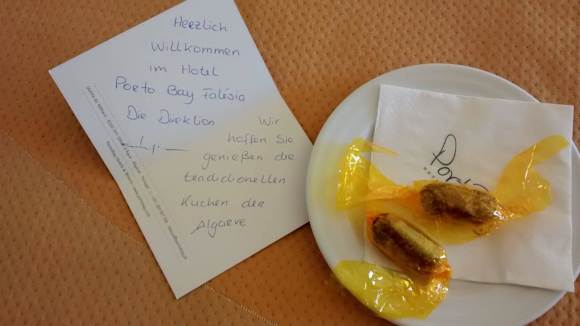 Herzlich
Willkommen
im Hotel
Porto Bay Falésia
Die Direktion
Wir
hoffen Sie
genießen die
tradicionellen
Kuchen der
Algarve